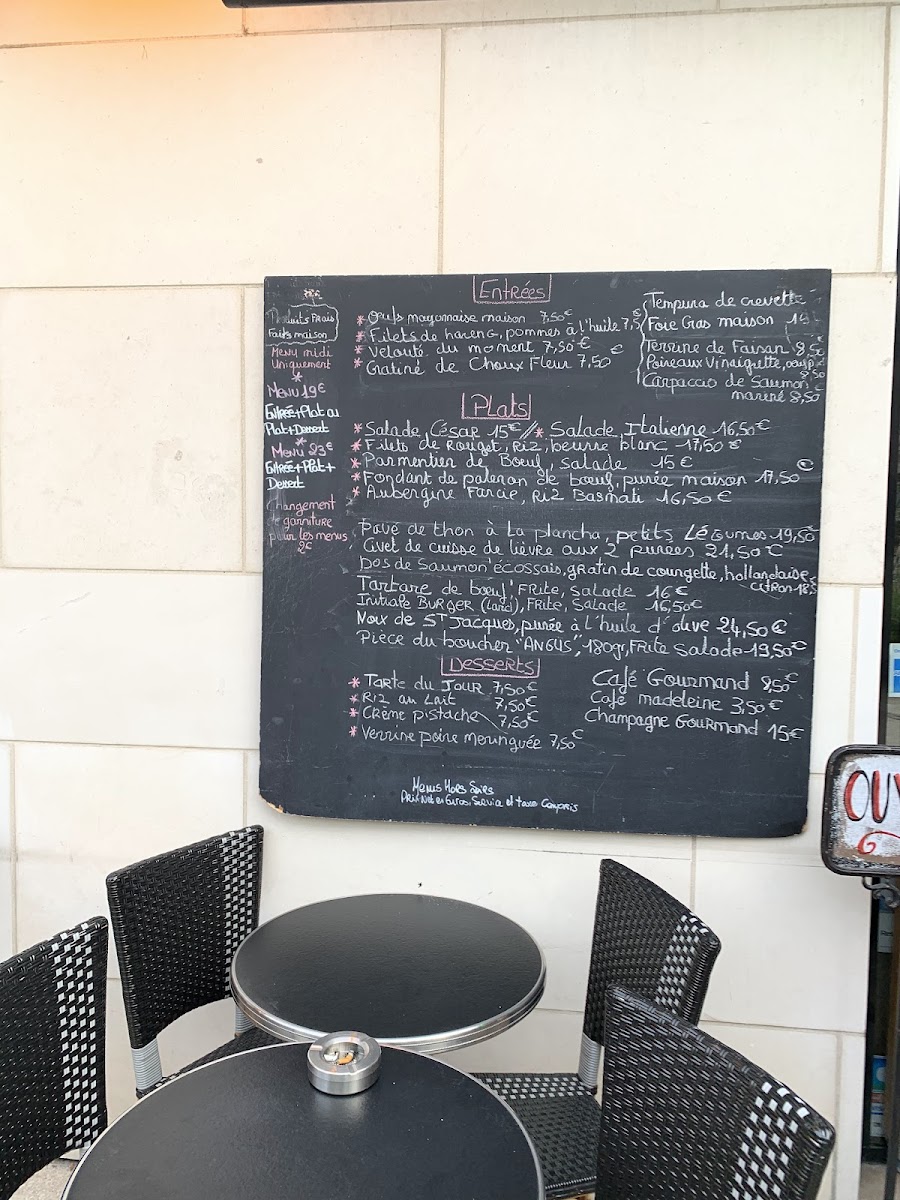 Produits Frais
Faits maison
Menu midi
Uniquement
*
Menu 19€
Entrée+Plat ou
Plat+Dessert
*
Menu 23€
Entrée+Plat+
Dessert
Changement
de garniture
pour les menus
2€
Entrées
* Oeufs mayonnaise maison 7,50€
* Filets de hareng, pommes à l'huile 7,5
* Velouté du moment 7,50€
* Gratiné de Choux Fleur 7,50€
Tempura de crevette
Foie Gras maison
Terrine de Faisan 8,50
Poireaux Vinaigrette, oeuf
8,50
Carpaccio de Saumon
mariné 8,50
Plats
* Salade César 15€ // * Salade Italienne 16,50€
* Filets de Rouget, Riz, beurre blanc 17,50€
* Parmentier de Boeuf, salade 15€
* Fondant de paleron de boeuf, purée maison 17,50€
* Aubergine Farcie, Riz Basmati 16,50€
Pavé de thon à la plancha, petits Légumes 19,50€
Civet de cuisse de lièvre aux 2 purées 21,50€
Dos de Saumon écossais, gratin de courgette, hollandaise
citron 18,5
Tartare de boeuf, Frite, Salade 16€
Initiale Burger (lard), Frite, Salade 16,50€
Noix de St Jacques, purée à l'huile d'olive 24,50€
Pièce du boucher "ANGUS", 180gr, Frite Salade - 19,50€
Desserts
* Tarte du Jour 7,50€
* Riz au Lait 7,50€
* Crème Pistache 7,50€
* Verrine poire meringuée 7,50€
Café Gourmand 9,50€
Café madeleine 3,50€
Champagne Gourmand 15€
Menus Hors Soirs
Prix Net en Euros, Service et taxes Compris
OUV